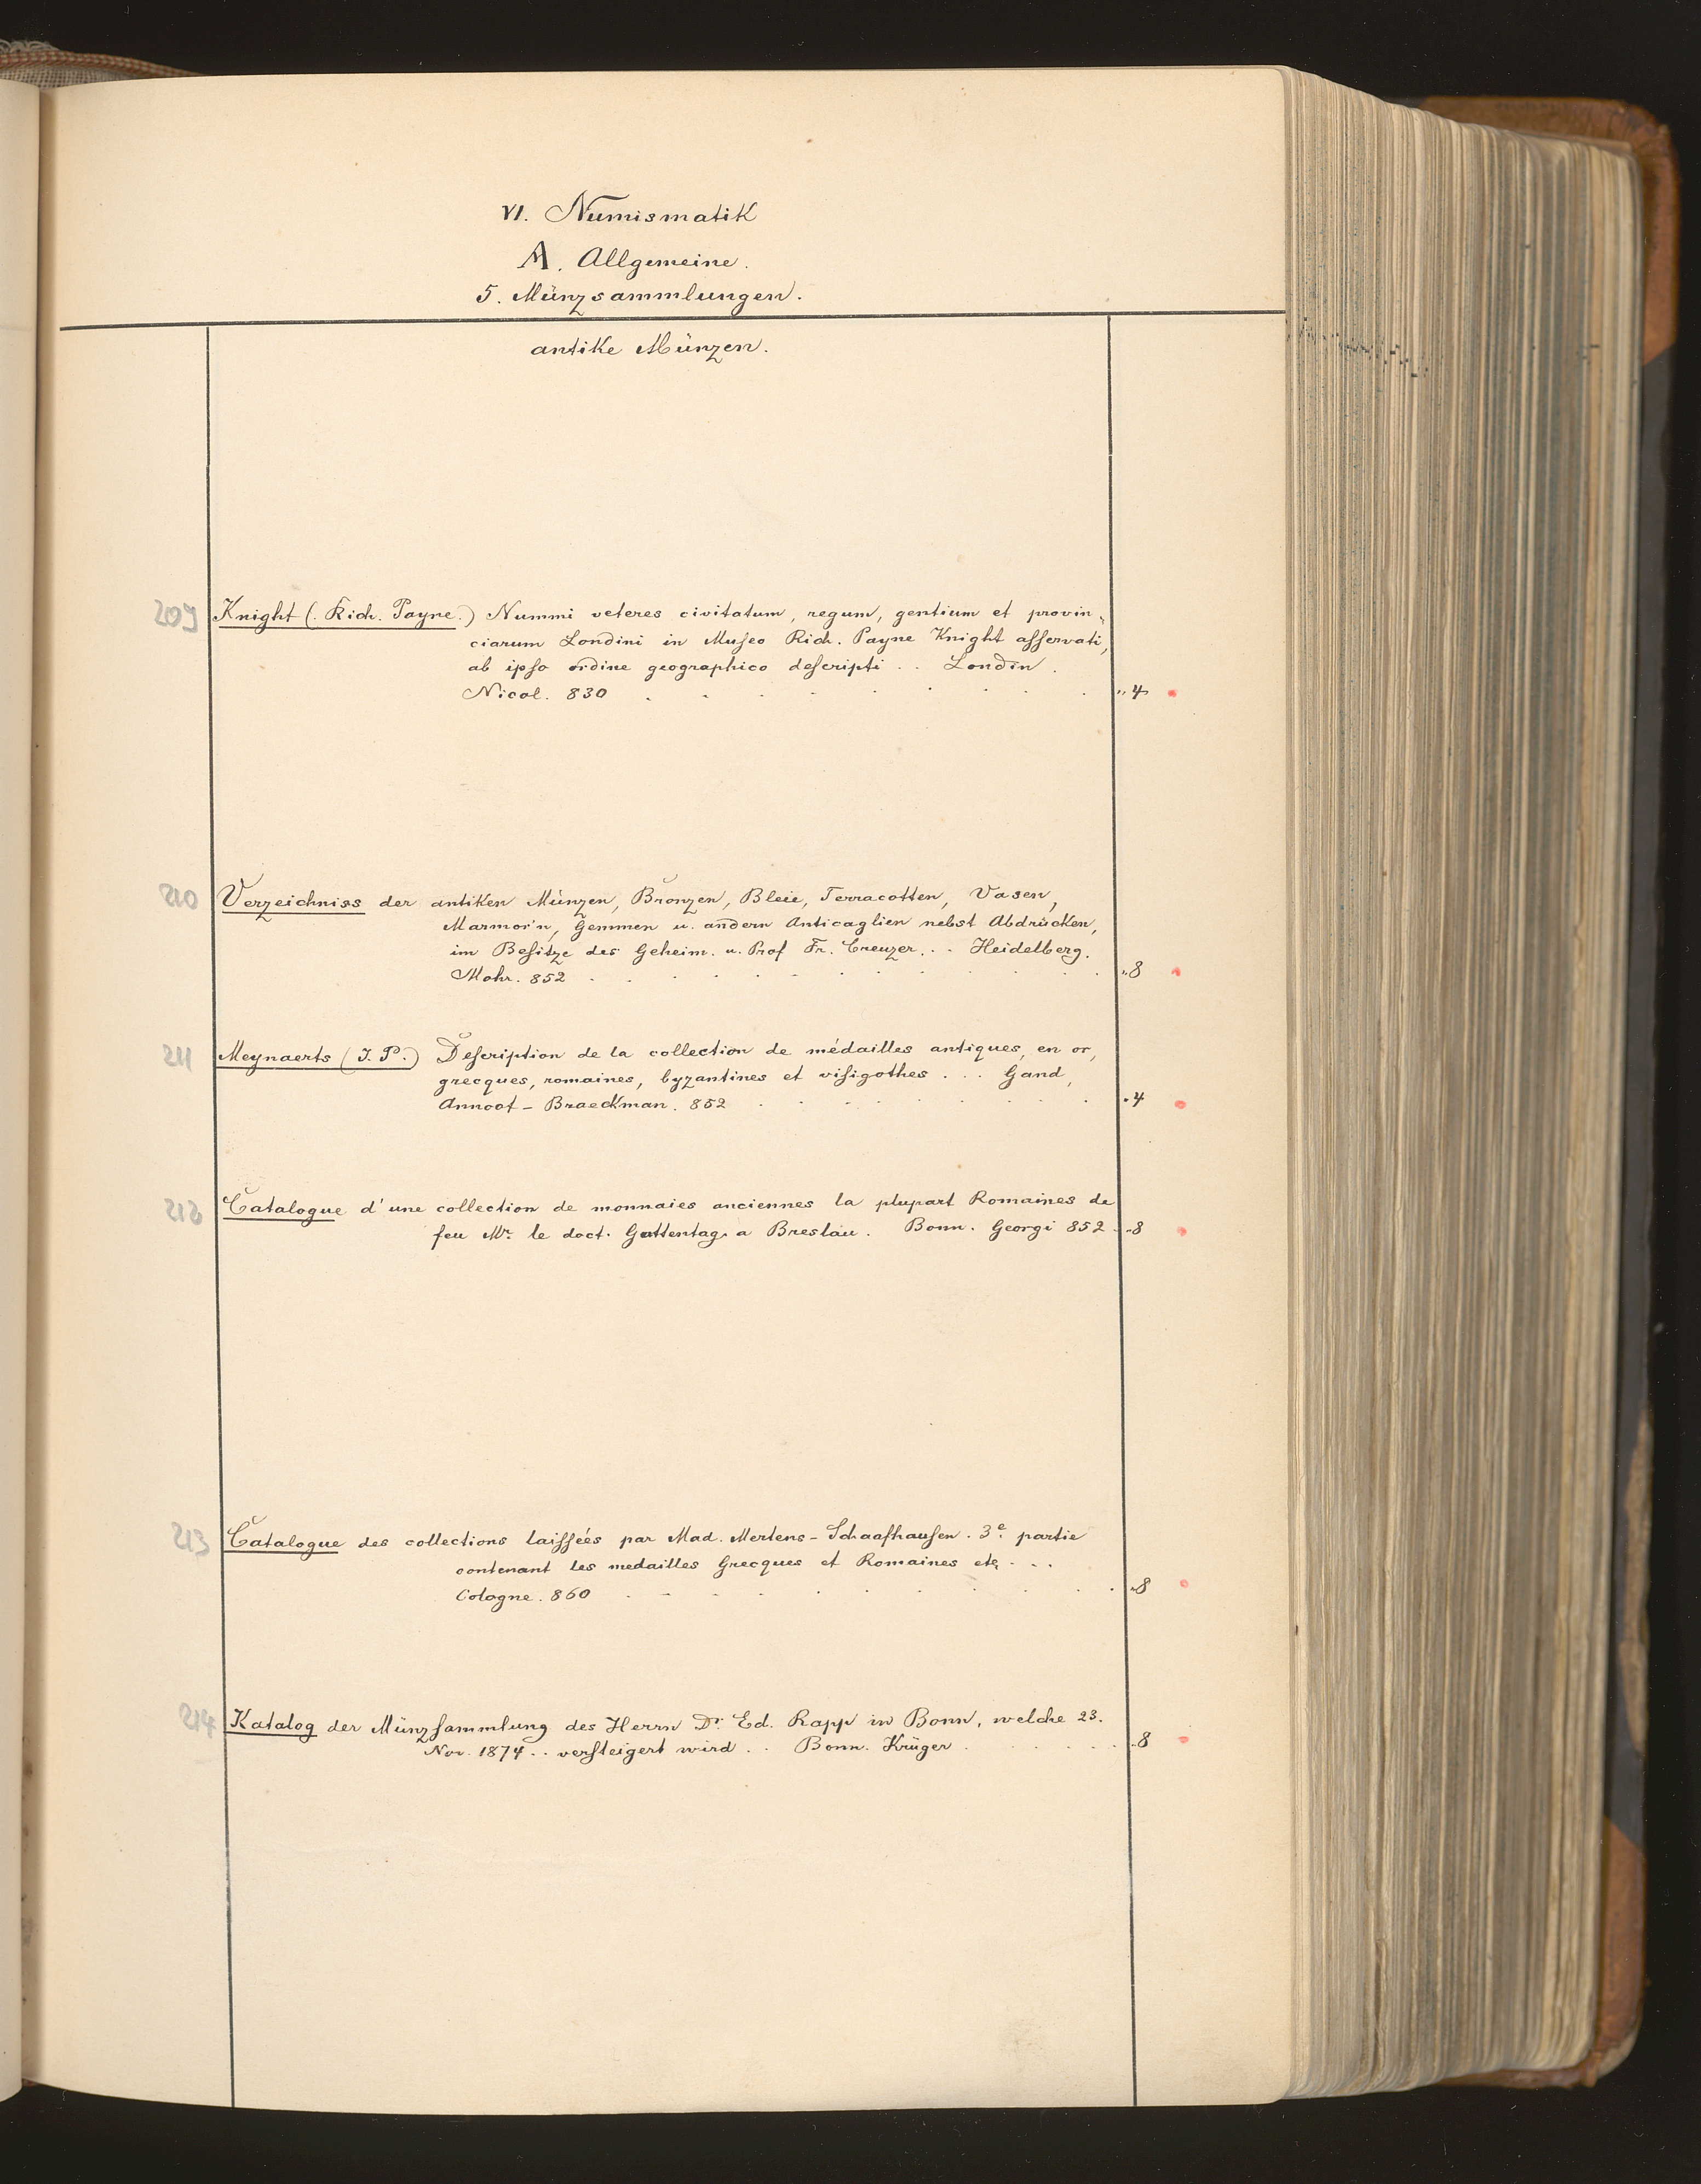 VI. Numismatik
A. Allgemeine.
5. Münzsammlungen.
antike Münzen.
209 Knight (. Rich. Payne.) Nummi veteres civitatum, regum, gentium et provin„
ciarum Londini in Museo Rich. Payne Knight asservati,
ab ipso ordine geographico descripti . . Londin.
Nicol. 830 . . . . . . . . . „ 4
210 Verzeichniss der antiken Münzen, Bronzen, Bleie, Terracotten, Vasen,
Marmor'n, Gemmen u. andern Anticaglien nebst Abdrücken,
im Besitze des Geheim. u. Prof Fr. Creuzer. . . Heidelberg.
Mohr. 852 . . . . . . . . . . „ 8
211 Meynaerts (J. P.) Description de la collection de médailles antiques, en or,
grecques, romaines, byzantines et visigothes . . . Gand,
Annoot - Braeckman. 852 . . . . . . . . „ 4
212 Catalogue d'une collection de monnaies anciennes la plupart Romaines de
feu Mr. le doct. Guttentag. a Breslau. Bonn. Georgi 852 . „ 8
213 Catalogue des collections laissées par Mad. Mertens - Schaafhausen. 3e. partie
contenant les medailles Grecques et Romaines etc. . . .
Cologne. 860 . . . . . . . . . . „ 8
214 Katalog der Münzsammlung des Herrn Dr. Ed. Rapp in Bonn, welche 23.
Nov. 1874 . . versteigert wird . . Bonn. Krüger . . . . . . „ 8